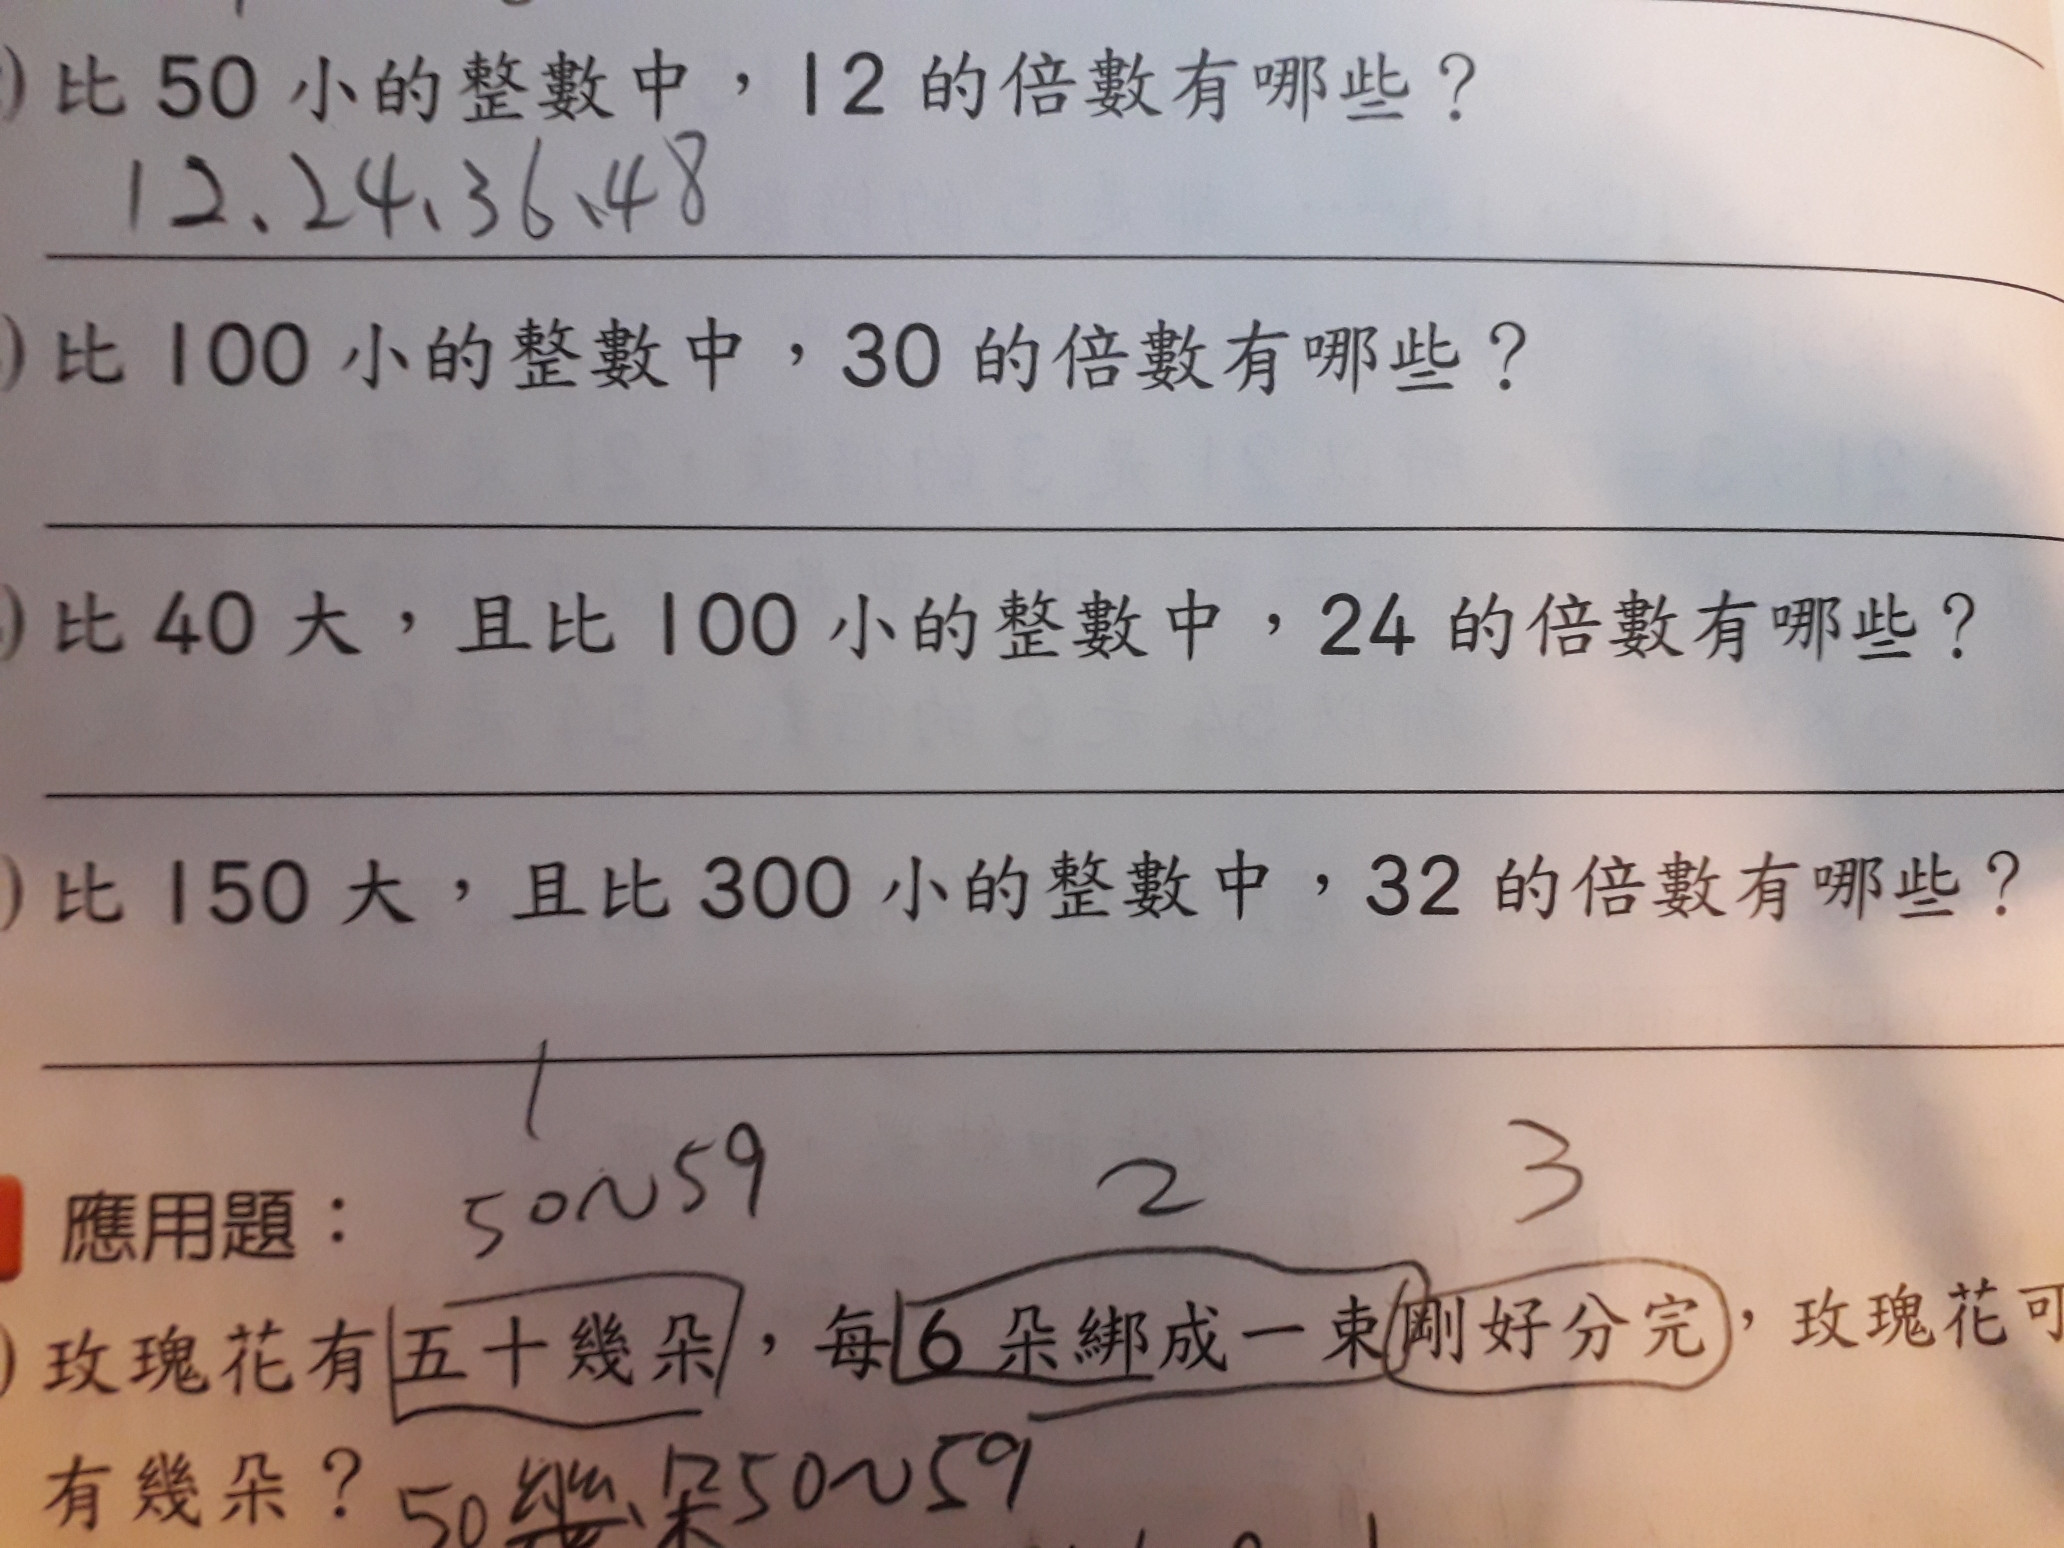 ) 比 50 小的整數中，12 的倍數有哪些？
12、24、36、48
) 比 100 小的整數中，30 的倍數有哪些？
) 比 40 大，且比 100 小的整數中，24 的倍數有哪些？
) 比 150 大，且比 300 小的整數中，32 的倍數有哪些？
1
50~59 2 3
應用題：
) 玫瑰花有五十幾朵，每 6 朵綁成一束剛好分完，玫瑰花可
有幾朵？ 50幾朵50~59